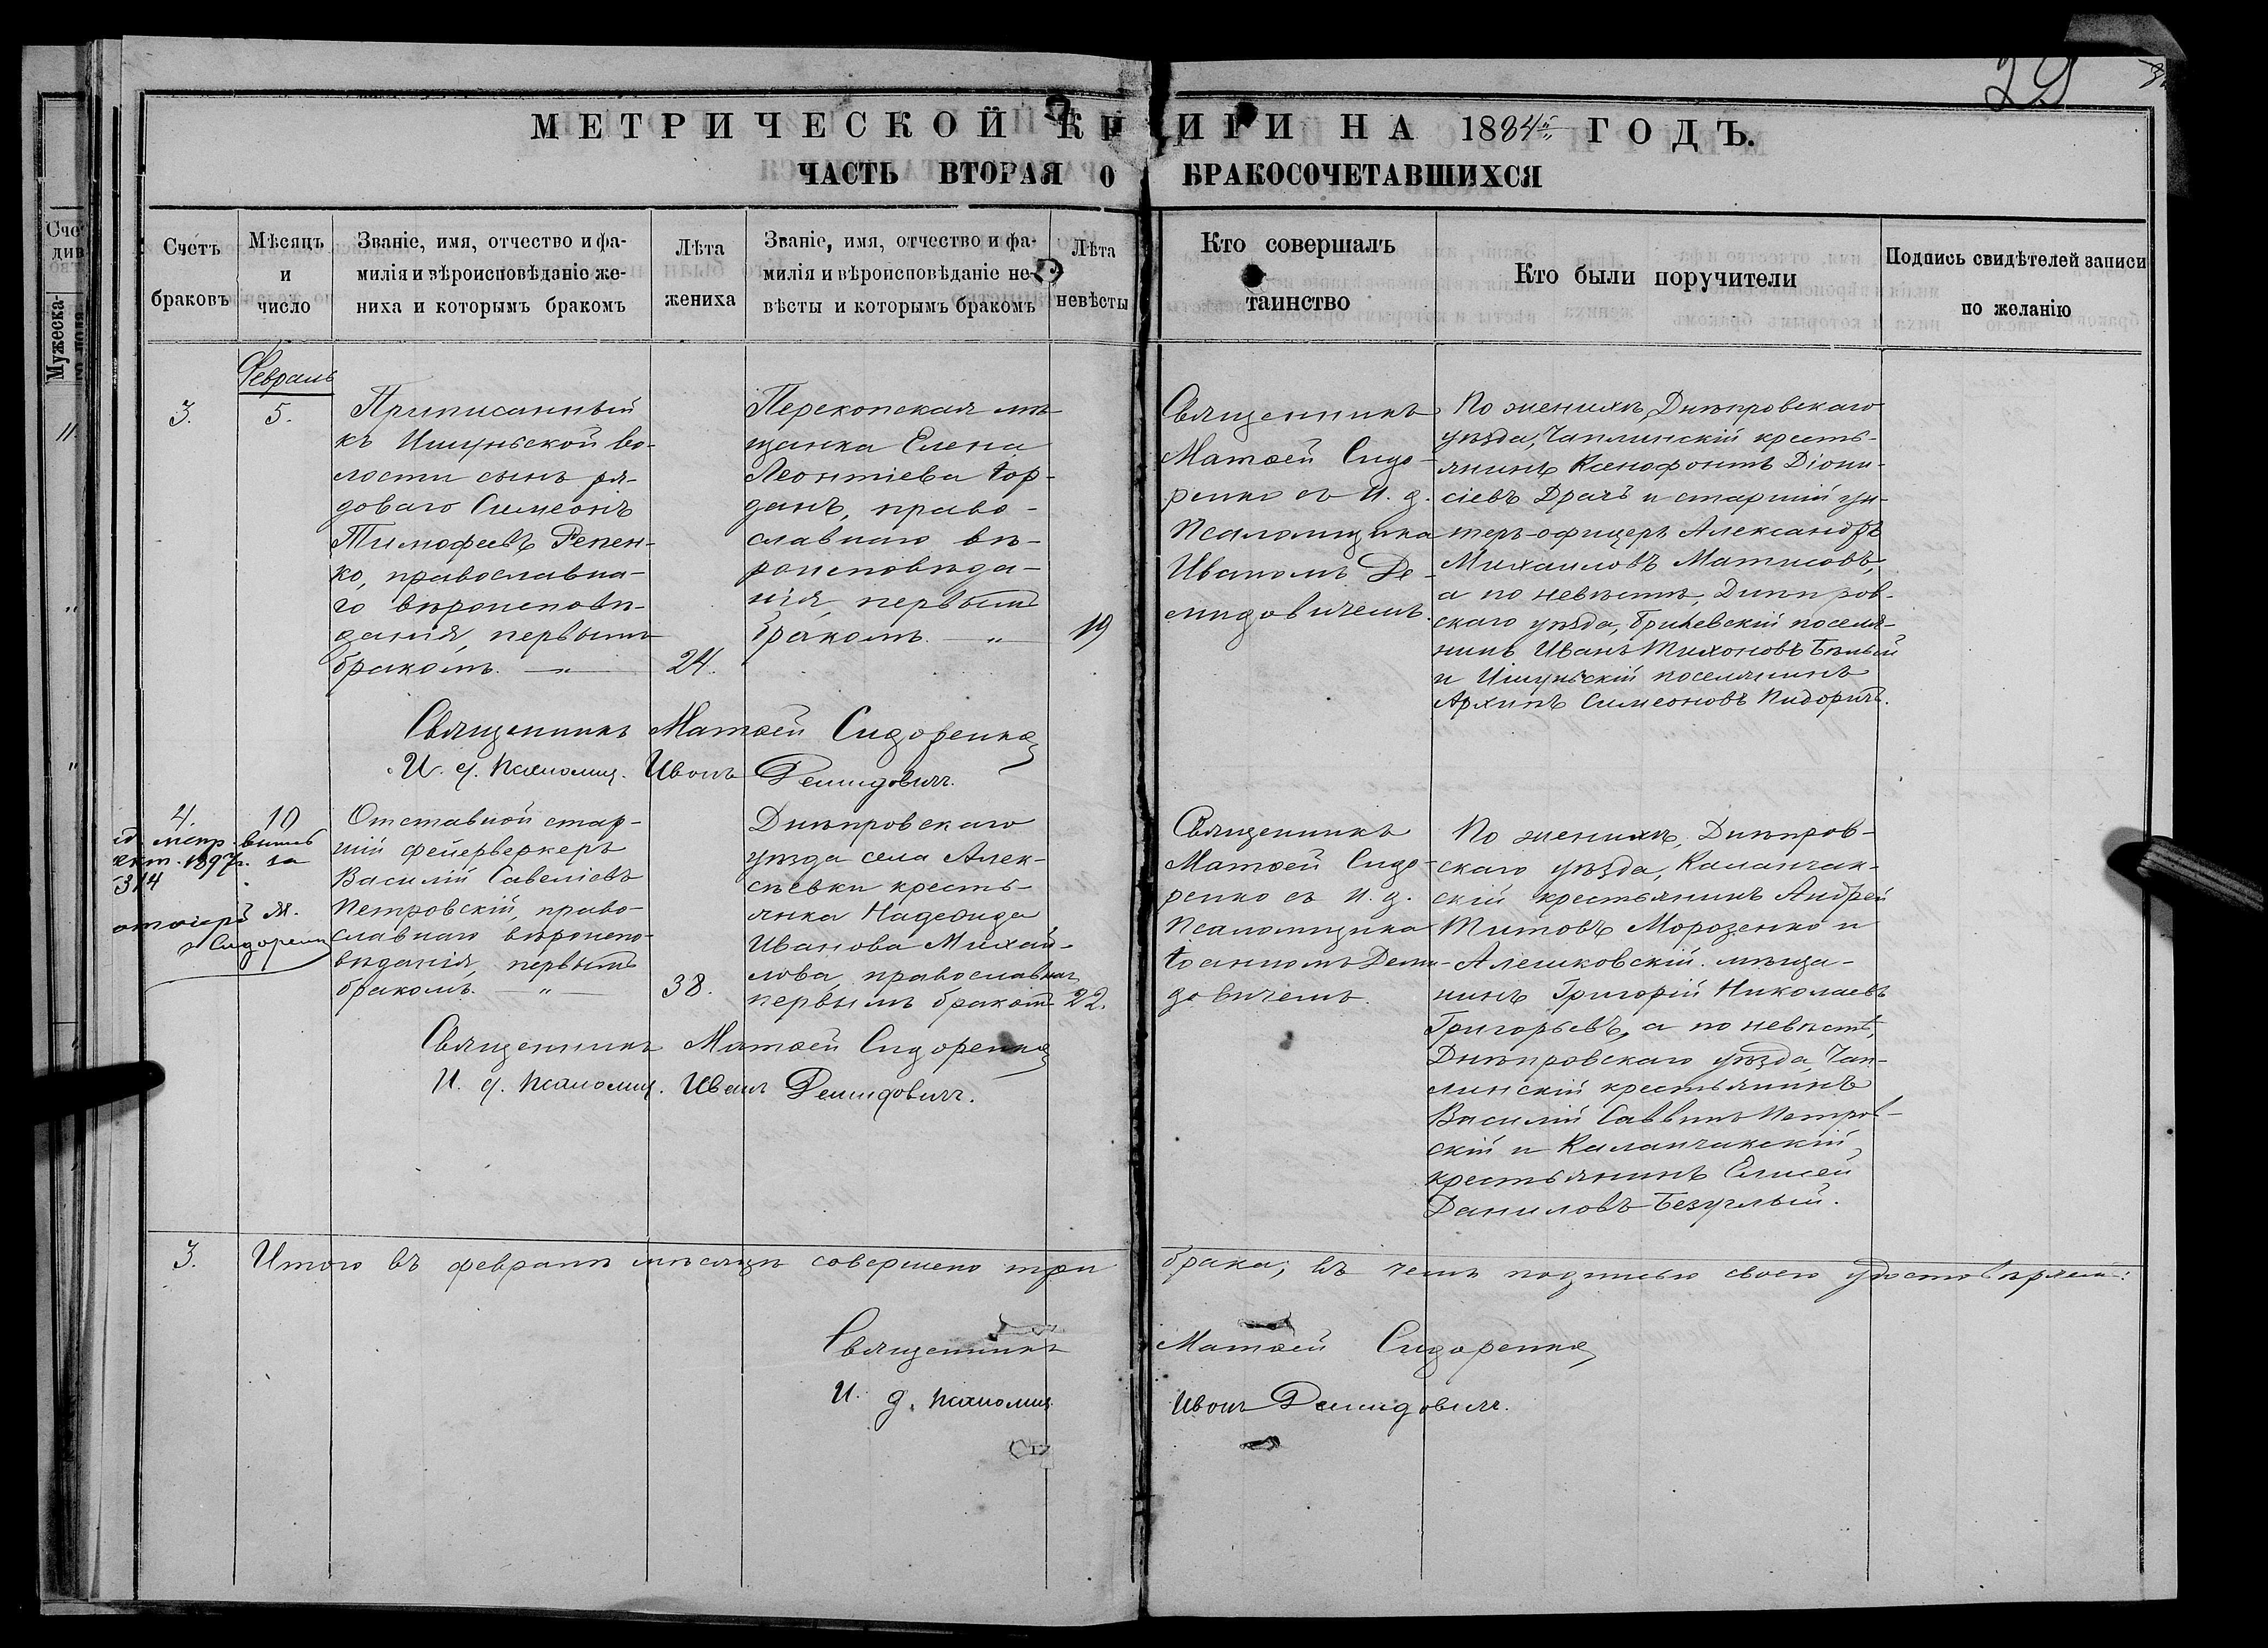 29
МЕТРИЧЕСКОЙ КНИГИ НА 1884й ГОДЪ.
ЧАСТЬ ВТОРАЯ О БРАКОСОЧЕТАВШИХСЯ
Счетъ браковъ
Мѣсяцъ и число
Званіе, имя, отчество и фа-
милія и вѣроисповѣданіе же-
ниха и которымъ бракомъ
Лѣта жениха
Званіе, имя, отчество и фа-
милія и вѣроисповѣданіе не-
вѣсты и которымъ бракомъ
Лѣта невѣсты
Кто совершалъ
таинство
Кто были поручители
Подпись свидѣтелей записи
по желанію
Мужеска-
Февраль
3.
5.
Приписанный
къ Ишуньской во-
лости сынъ ря-
доваго Симеонъ
Тимофеевъ Репен-
ко, православна-
го вѣроисповѣ-
данія, первымъ
бракомъ. — „ —
24.
Перекопская мѣ-
щанка Елена
Леонтіева Іор-
данъ, право-
славнаго вѣ-
роисповѣда-
нія, первымъ
бракомъ. — „ —
19
Священникъ
Матѳей Сидо-
ренко съ И. д.
Псаломщика
Иваномъ Де-
мидовичемъ.
По женихѣ, Днѣпровскаго
уѣзда, Чаплинскій кресть-
янинъ Ксенофонтъ Діони-
сіевъ Драчъ и старшій ун-
теръ-офицеръ Александръ
Михаиловъ Матисовъ,
а по невѣстѣ, Днѣпров-
скаго уѣзда, поселя-
нинъ Иванъ Тихоновъ Бѣлый
и Ишуньскій поселянинъ
Архипъ Симеоновъ Пидоричъ.
Священникъ Матѳей Сидоренко
И. д. псаломщ. Иванъ Демидовичъ.
4.
10
1897г. за
314
М.
Сидоренко
Отставной стар-
шій фейерверкеръ
Василій Савеліевъ
Петровскій, право-
славнаго вѣроиспо-
вѣданія, первымъ
бракомъ. — „ —
38.
Днѣпровскаго
уѣзда села Алек-
сѣевки кресть-
янка Надежда
Иванова Михай-
лова, православнаго
первымъ бракомъ
22.
Священникъ
Матѳей Сидо-
ренко съ И. д.
Псаломщика
Іоанномъ Деми-
довичемъ.
По женихѣ, Днѣпров-
скаго уѣзда, Каланчак-
скій крестьянинъ Андрей
Титовъ Морозенко и
Алешковскій мѣща-
нинъ Григорій Николаевъ
Григорьевъ, а по невѣстѣ,
Днѣпровскаго уѣзда, Чап-
линскій крестьянинъ
Василій Саввинъ Петров-
скій и Каланчакскій
крестьянинъ Елисей
Даниловъ Безуглый.
Священникъ Матѳей Сидоренко
И. д. псаломщ. Иванъ Демидовичъ.
3. Итого въ февралѣ мѣсяцѣ совершено три брака; въ чемъ подписью своею удостовѣряемъ:
Священникъ Матѳей Сидоренко
И. д. псаломщ. Иванъ Демидовичъ.